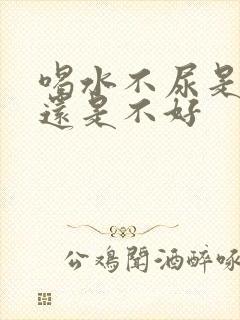 喝水不尿是
還是不好
公鸡聞酒醉啄